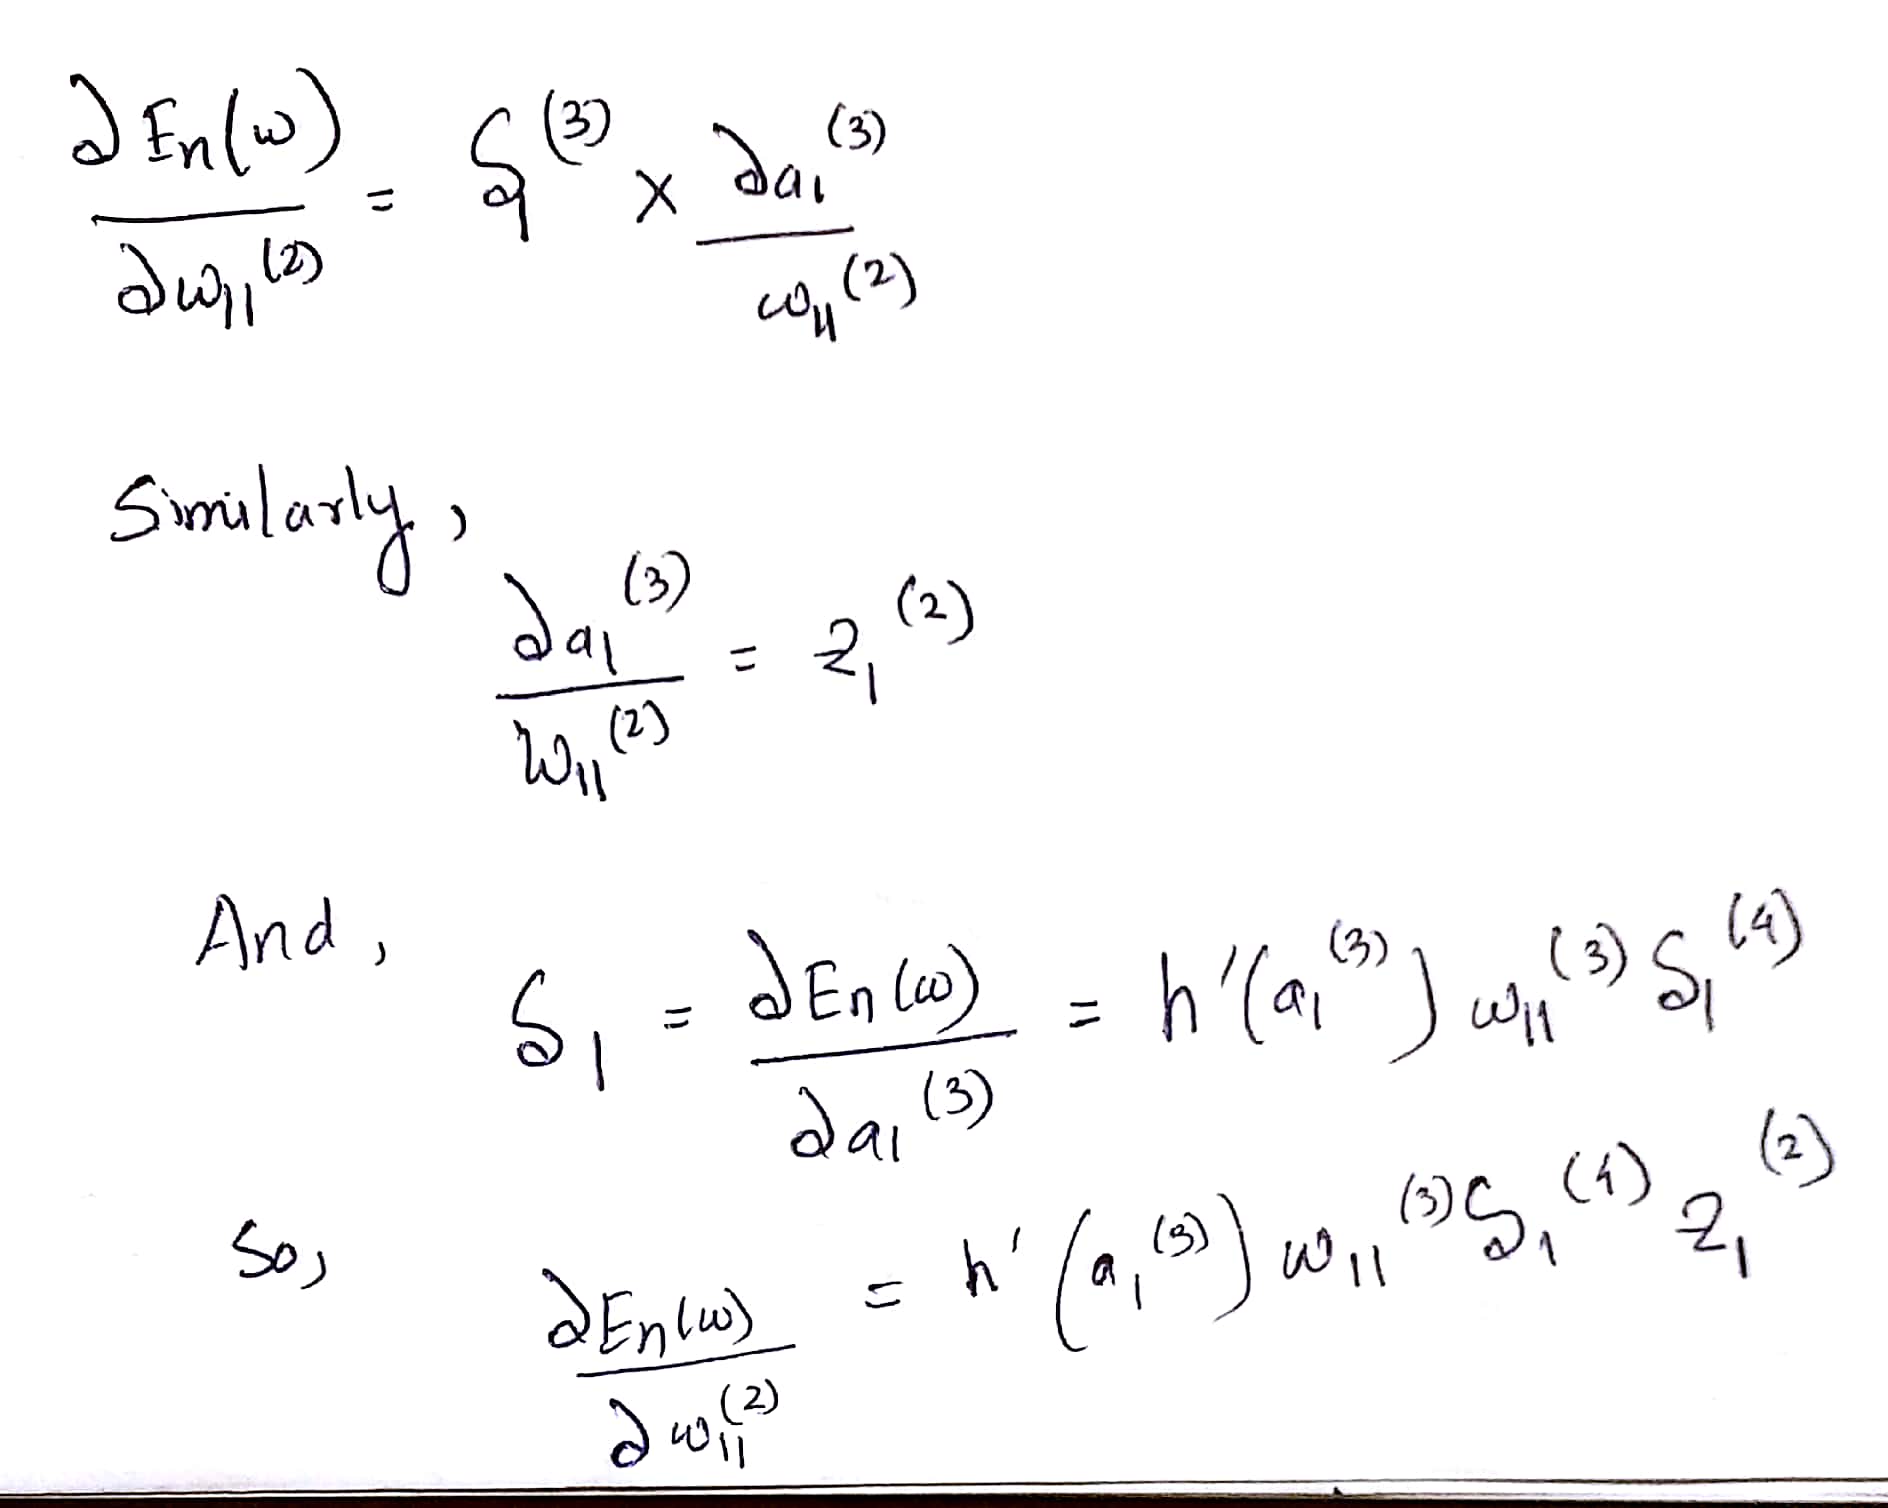 ∂En(w)/∂w₁₁⁽²⁾ = δ₁⁽³⁾ × ∂a₁⁽³⁾/w₁₁⁽²⁾
Similarly,
∂a₁⁽³⁾/w₁₁⁽²⁾ = z₁⁽²⁾
And,
δ₁ = ∂En(w)/∂a₁⁽³⁾ = h'(a₁⁽³⁾) w₁₁⁽³⁾ δ₁⁽⁴⁾
So,
∂En(w)/∂w₁₁⁽²⁾ = h'(a₁⁽³⁾) w₁₁⁽³⁾ δ₁⁽⁴⁾ z₁⁽²⁾